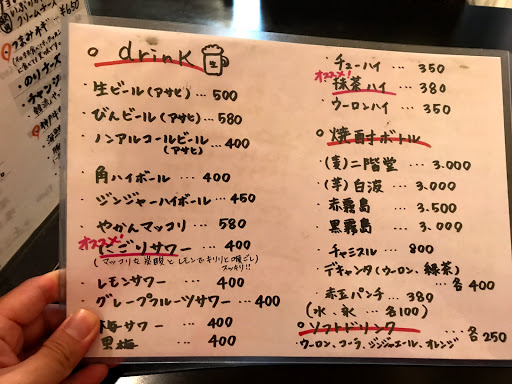 クリームチーズ ¥650
つまみ
のりチーズ
チャンジ
drink
生
生ビール(アサヒ) … 500
びんビール(アサヒ) … 580
ノンアルコールビール … 400
(アサヒ)
角ハイボール … 400
ジンジャーハイボール … 450
やかんマッコリ … 580
オススメ!
にごりサワー … 400
(マッコリな炭酸とレモンでキリリと喉ごし
スッキリ!!
レモンサワー 400
グレープフルーツサワー … 400
梅サワー … 400
黒梅 … 400
チューハイ … 350
オススメ!
抹茶ハイ … 380
ウーロンハイ … 350
焼酎ボトル
(麦)二階堂 … 3.000
(芋)白波 … 3.000
赤霧島 … 3.500
黒霧島 … 3.000
チャミスル … 800
デキャンタ(ウーロン、緑茶)
… 各400
赤玉パンチ … 380
(水、氷 … 各100)
ソフトドリンク … 各250
・ウーロン、コーラ、ジンジャエール、オレンジ